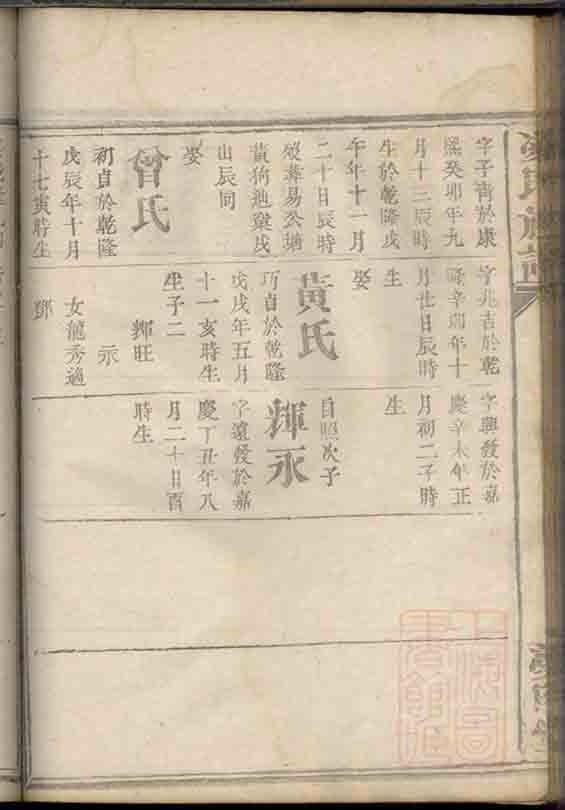 氏族譜
字子於康
熙癸卯年九
月十三辰時
生於乾隆戊
午年十一月
二十日辰時
歿葬易公塘
黃狗池戌
山辰向
娶
曾氏
初貞於乾隆
戊辰年十月
十七寅時生
字兆吉於乾
隆辛卯年十
月廿日辰時
生
娶
黃氏
巧貞於乾隆
戊戌年五月
十一亥時生
生子二
輝旺
永
女龍秀適
鄧
字興發於嘉
慶辛未年正
月初二子時
生
自照次子
輝永
字遠發於嘉
慶丁丑年八
月二十日酉
時生
上海圖
書館藏